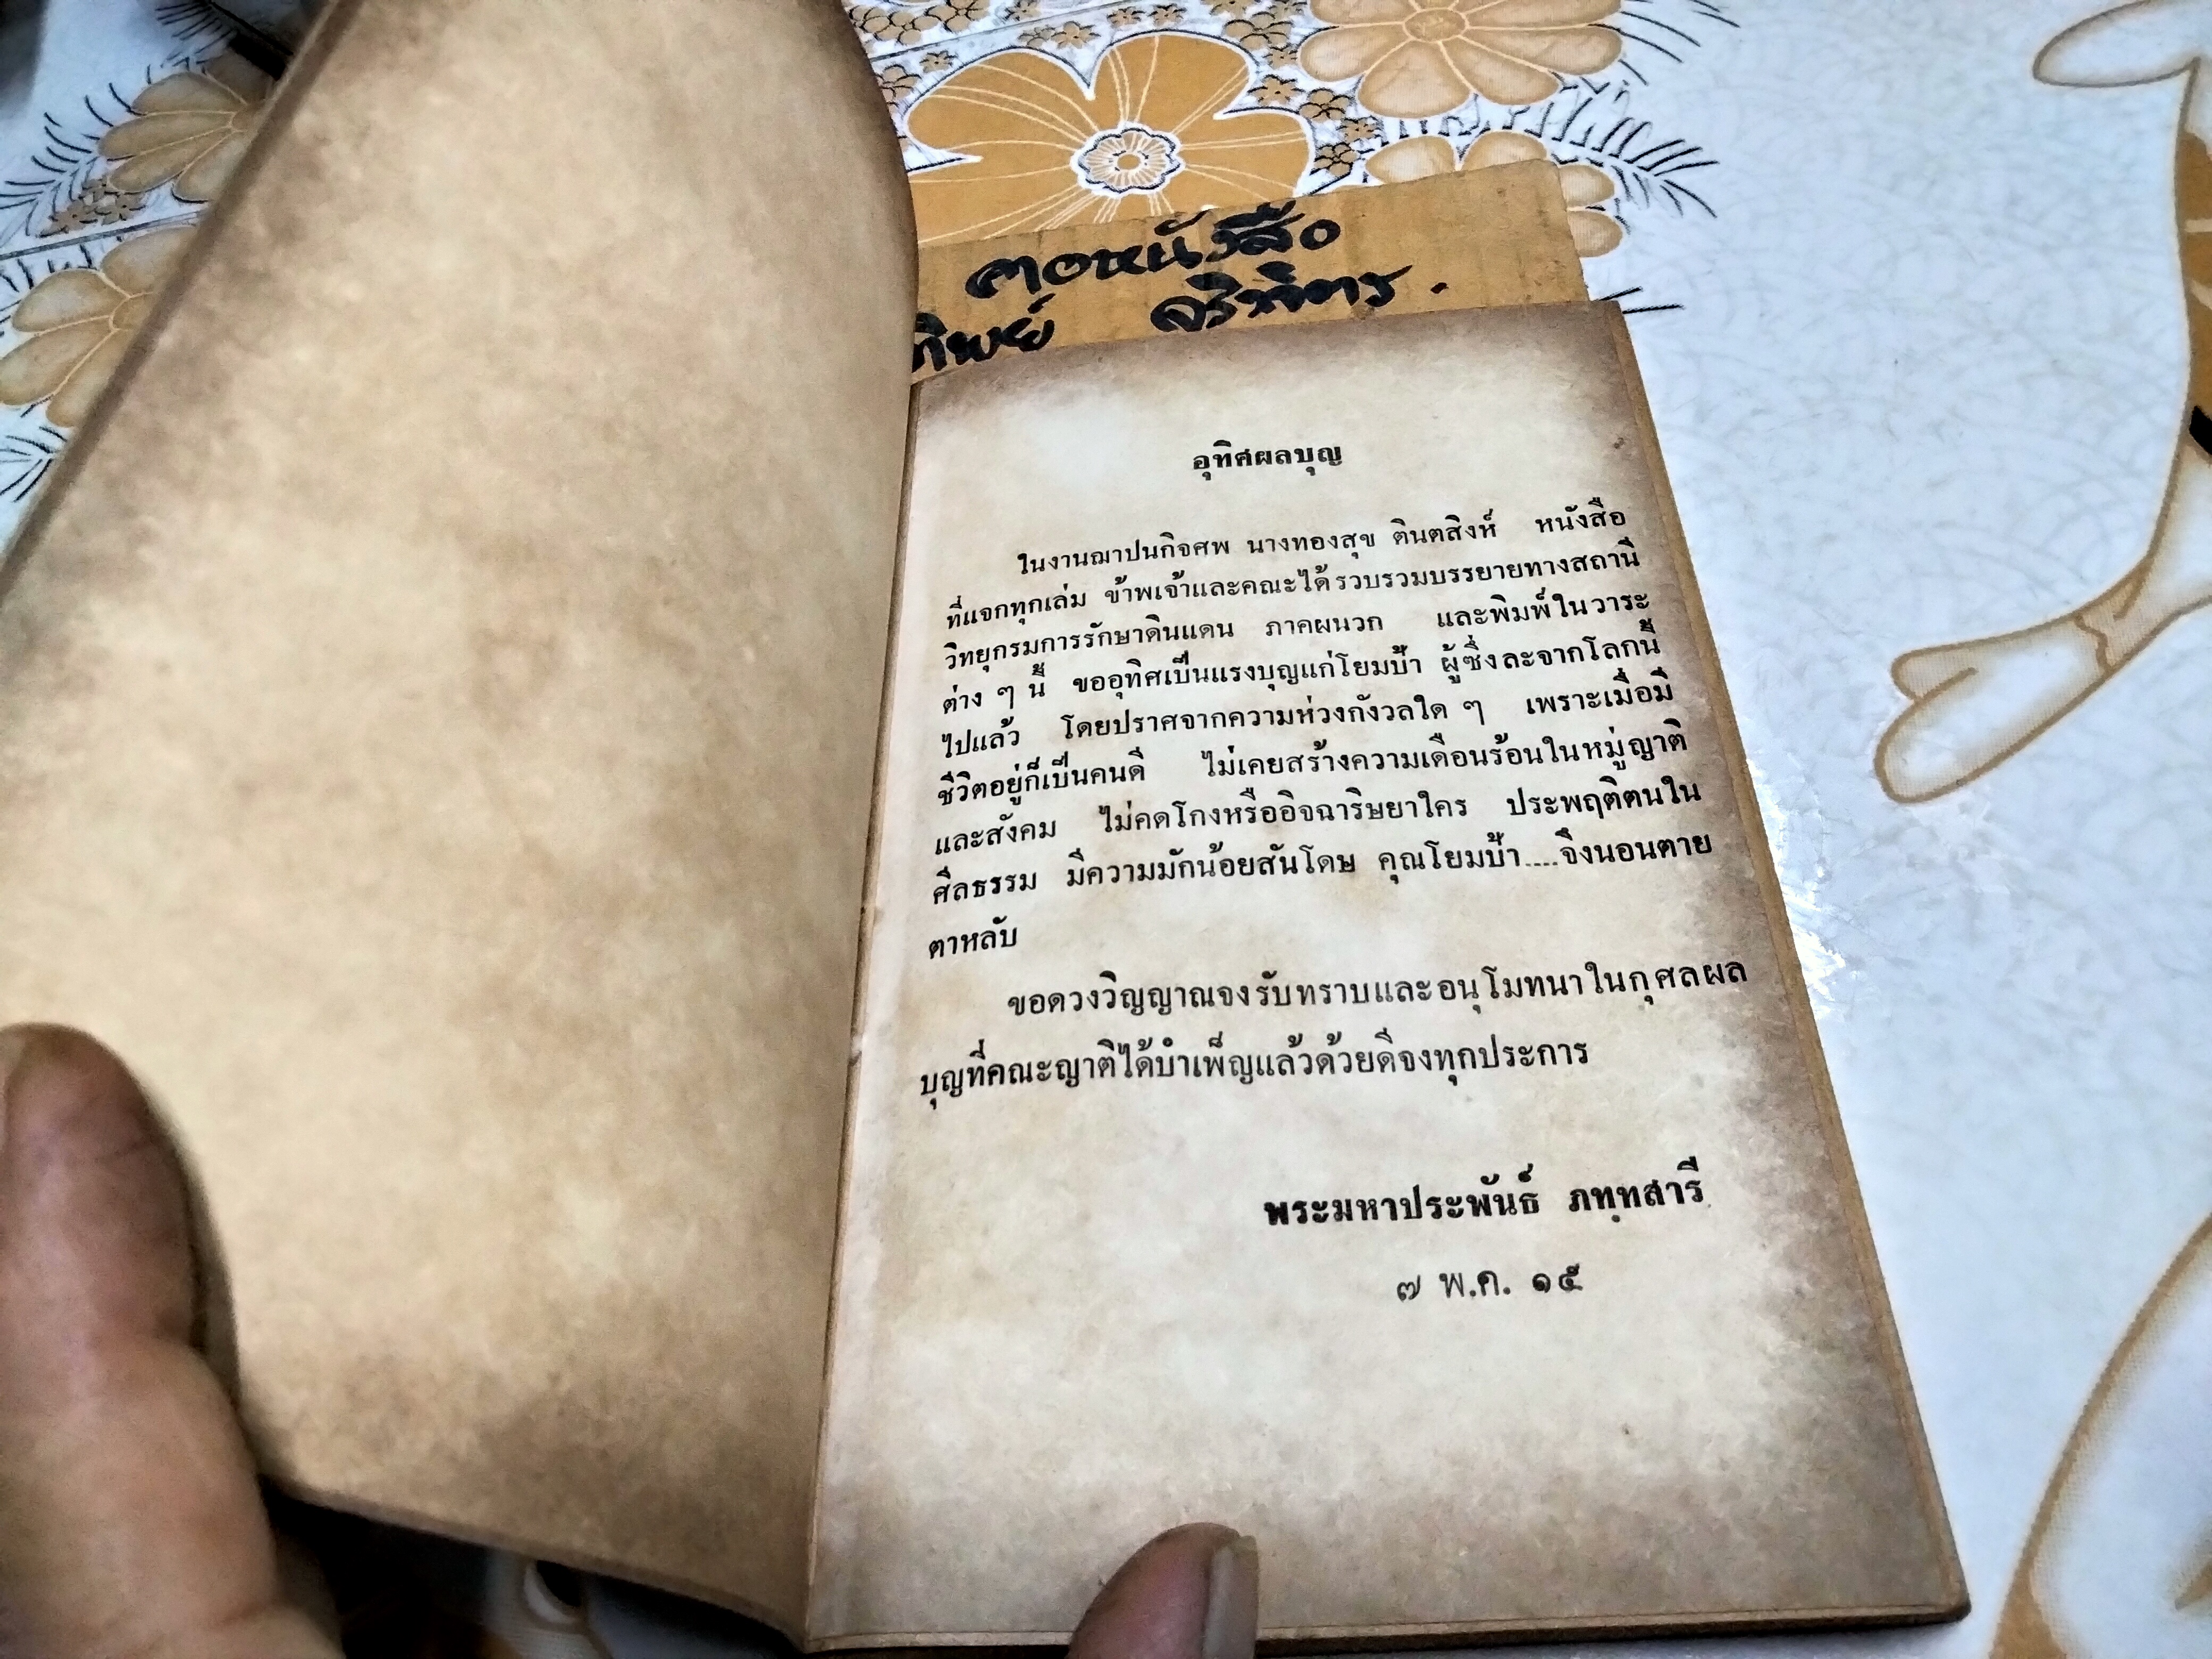 คอหนังสือ
ทิพย์
อุทิศผลบุญ
ในงานฌาปนกิจศพ นางทองสุข ตินตสิงห์ หนังสือ
ที่แจกทุกเล่ม ข้าพเจ้าและคณะได้รวบรวมบรรยายทางสถานี
วิทยุกรมการรักษาดินแดน ภาคผนวก และพิมพ์ในวาระ
ต่าง ๆ นี้ ขออุทิศเป็นแรงบุญแก่โยมป้า ผู้ซึ่งละจากโลกนี้
ไปแล้ว โดยปราศจากความห่วงกังวลใด ๆ เพราะเมื่อมี
ชีวิตอยู่ก็เป็นคนดี ไม่เคยสร้างความเดือนร้อนในหมู่ญาติ
และสังคม ไม่คดโกงหรืออิจฉาริษยาใคร ประพฤติตนใน
ศีลธรรม มีความมักน้อยสันโดษ คุณโยมป้า....จึงนอนตาย
ตาหลับ
ขอดวงวิญญาณจงรับทราบและอนุโมทนาในกุศลผล
บุญที่คณะญาติได้บำเพ็ญแล้วด้วยดีจงทุกประการ
พระมหาประพันธ์ ภทฺทสารี
๗ พ.ค. ๑๕